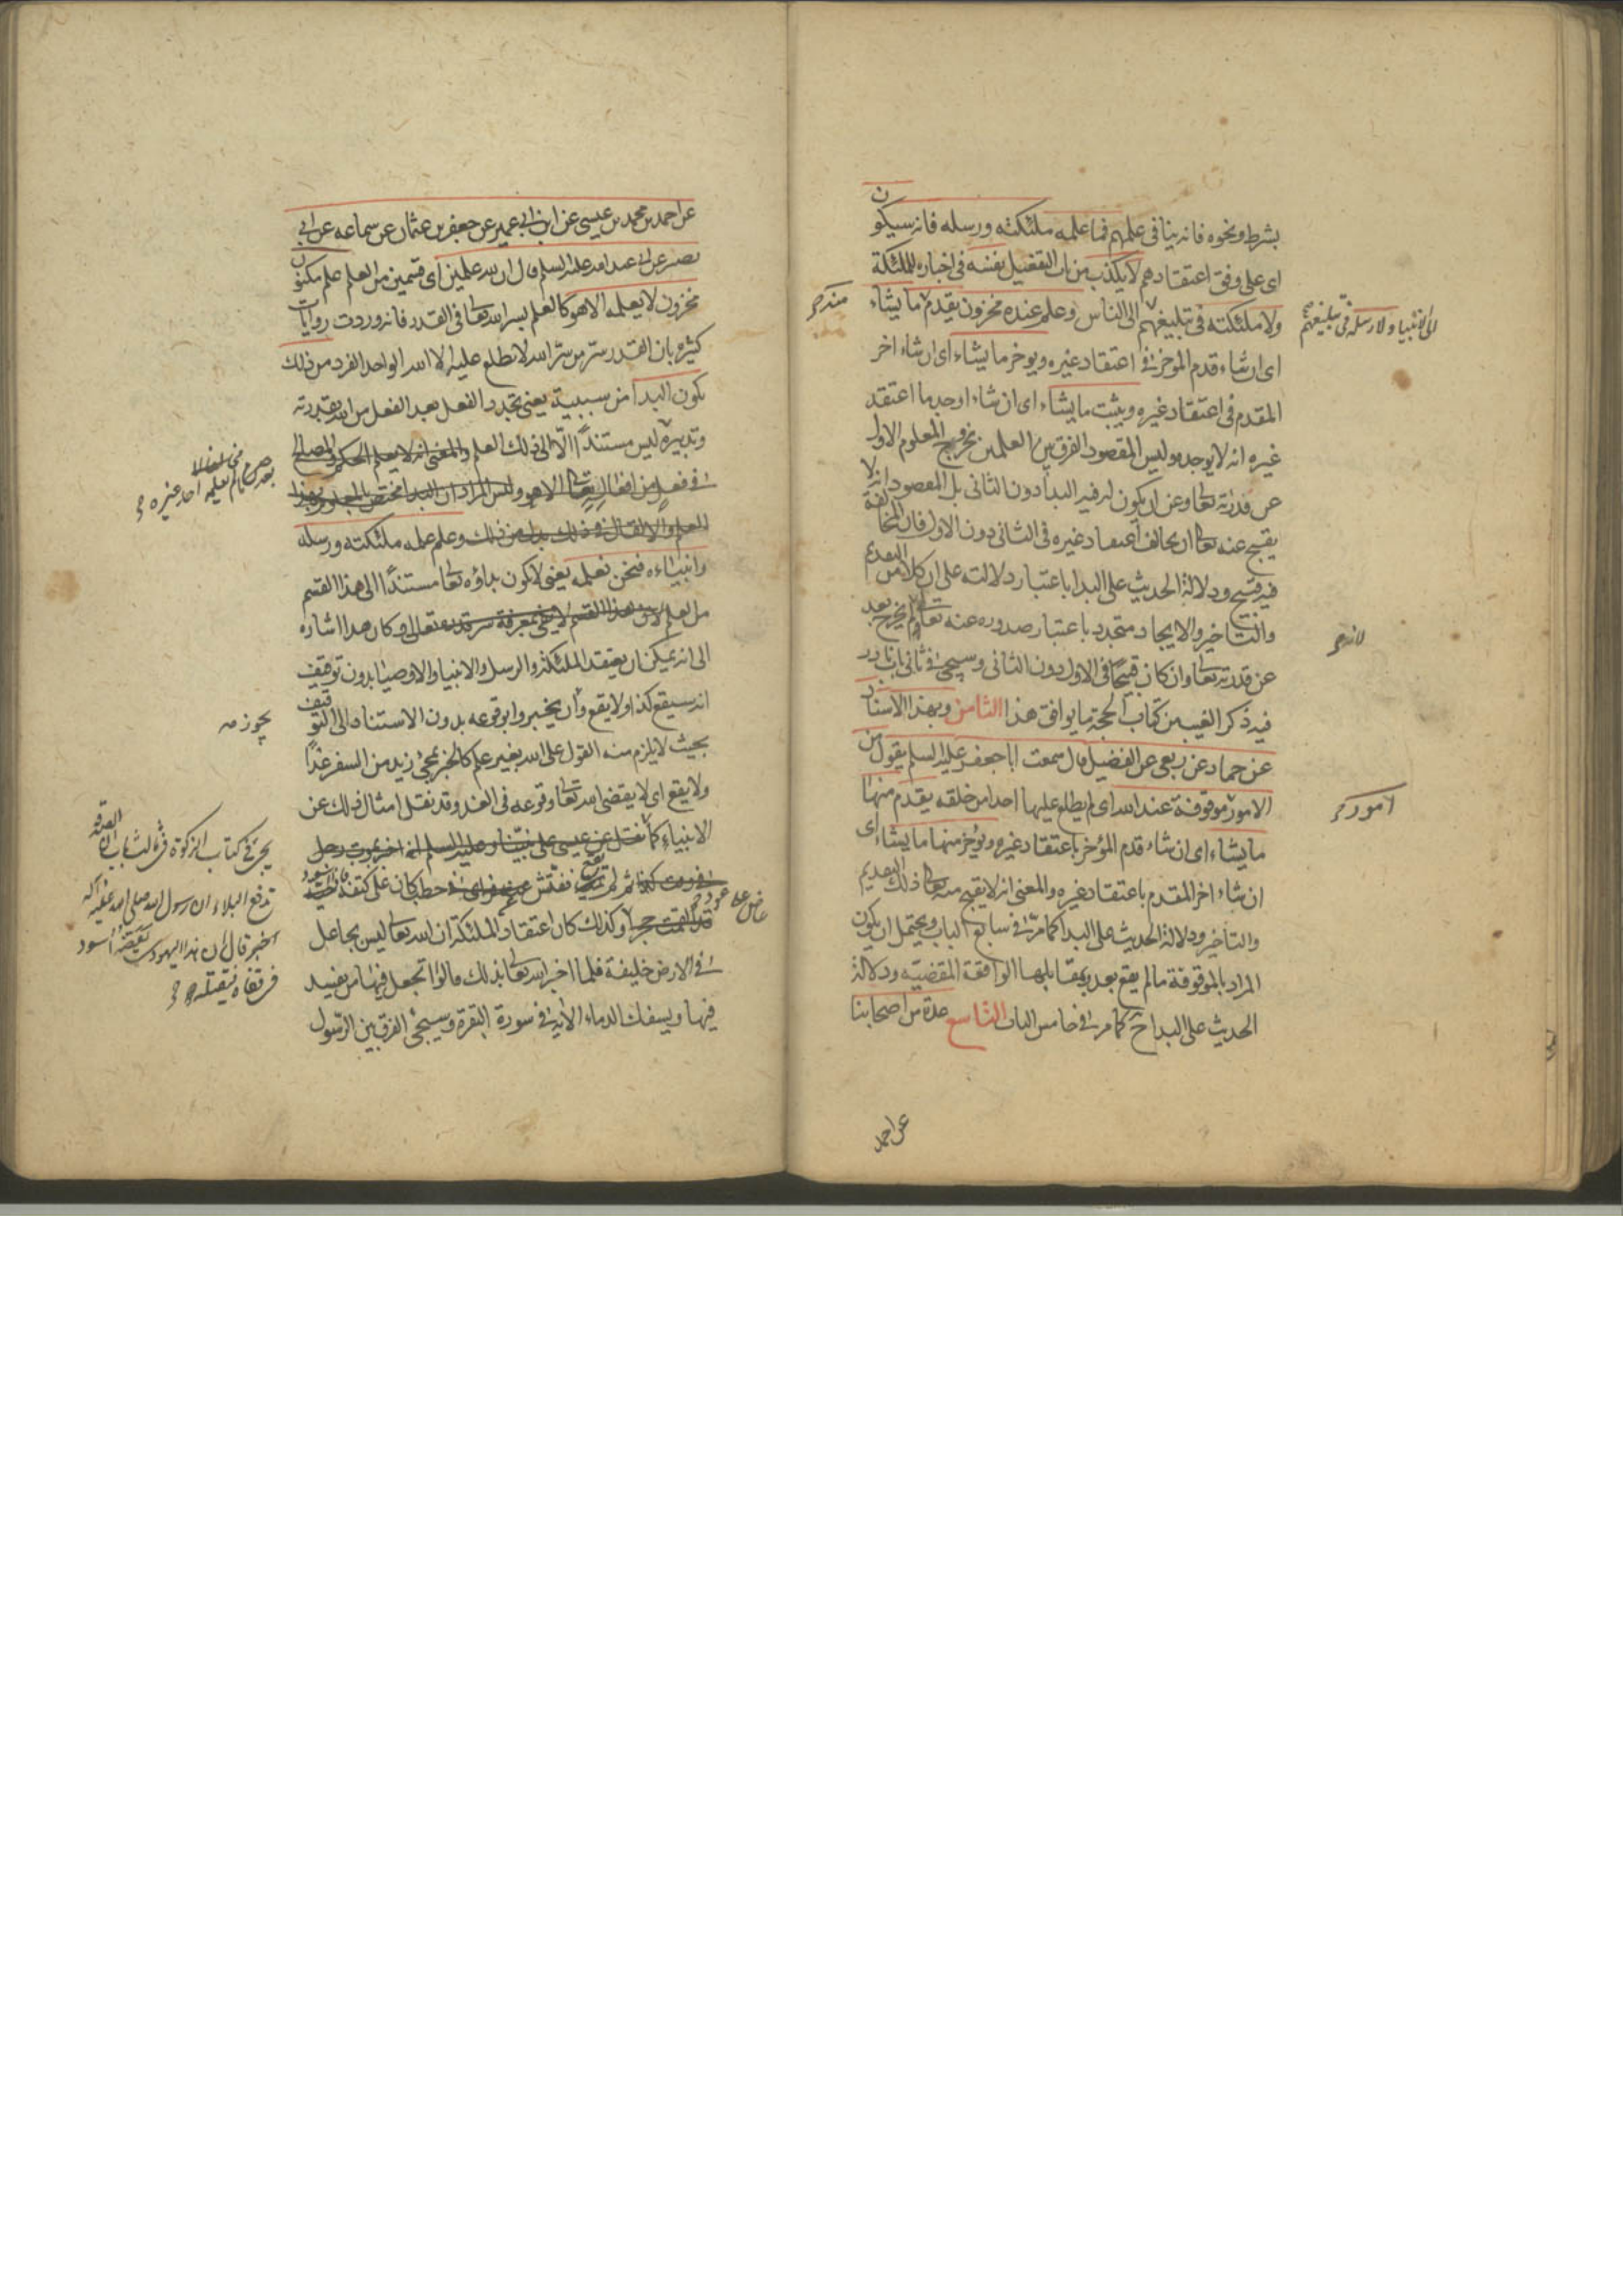 بشرط ونحوه فانه ينافى علمهم فما علمه ملئكته ورسله فانه سيكون
اى على وفق اعتقادهم لا يكذب من باب التفعيل نفسه فى اخباره للملئكة
ولا ملئكته فى تبليغهم الى الناس وعلم عنده مخزون يقدم منه ما يشاء
اى ان شاء قدم المؤخر فى اعتقاد غيره ويوخر ما يشاء اى ان شاء اخر
المقدم فى اعتقاد غيره ويثبت ما يشاء اى ان شاء اوجد ما اعتقد
غيره انه لا يوجد وليس المقصود الفرق بين العلمين بخروج المعلوم الاول
عن قدرته تعالى وعن ان يكون له فيه البدا دون الثانى بل المقصود انه لا
يقبح عنه تعالى ان يخالف اعتقاد غيره فى الثانى دون الاول فان المخالفة
فيه قبيح ودلالة الحديث على البدا باعتبار دلالته على ان كلا من التقديم
والتاخير والايجاد متجدد باعتبار صدوره عنه تعالى لم يخرج بعد
عن قدرته تعالى وان كان قبيحًا فى الاول دون الثانى وسيجئ فى ثانى باب نادر
فيه ذكر الغيب من كتاب الحجة ما يوافق هذا الثامن وبهذا الاسناد
عن حماد عن ربعى عن الفضيل قال سمعت ابا جعفر عليه السلم يقول من
الامور موقوفة عند الله اى لم يطلع عليها احدا من خلقه يقدم منها
ما يشاء اى ان شاء قدم المؤخر باعتقاد غيره ويؤخر منها ما يشاء اى
ان شاء اخر المقدم باعتقاد غيره والمعنى انه لا يقبح منه تعالى ذلك التقديم
والتأخير ودلالة الحديث على البدا كما مر فى سابع الباب ويحتمل ان يكون
المراد بالموقوفة ما لم يقع بعد بقابلها الواقعة المقضيه ودلالة
الحديث على البداح كما مر فى خامس الباب التاسع عدة من اصحابنا
عن احمد
الى الانبياء ولا رسله فى تبليغهم
لانه
امور
عن احمد بن محمد بن عيسى عن ابن ابى عمير عن جعفر بن عثمان عن سماعه عن ابى
بصير عن ابى عبد الله عليه السلم قال ان لله علمين اى قسمين من العلم علم مكنون
مخزون لا يعلمه الا هو كالعلم بسر الله تعالى فى القدر فانه وردت روايات
كثيره بان القدر سر من سر الله لا يطلع عليه الا الله الواحد الفرد من ذلك
يكون البدا من سببية يعنى تجدد الفعل بعد الفعل من الله بقدرته
وتدبيره ليس مستندًا الا الى ذلك العلم والمعنى انه لا يعلم الحكم والمصالح
فى فعل من افعاله تعالى الا هو وليس المراد ان البدا مختص بالمعلوم بهذا
العلم والا لقال فى ذلك بدل من ذلك وعلم علمه ملئكته ورسله
وانبياءه فنحن نعلمه يعنى لا يكون بداؤه تعالى مستندًا الى هذا القسم
من العلم
الى انه يمكن ان يعتقد الملئكة والرسل والانبيا والاوصيا بدون توقيف
انه سيقع كذا ولا يقع وان يخبروا بوقوعه بدون الاستناد الى التوقيف
بحيث لا يلزم منه القول على الله بغير علم كالخبر بمجئ زيد من السفر غدًا
ولا يقع اى لا يقضى الله تعالى وقوعه فى الغد وقد نقل امثال ذلك عن
الانبياء كما نقل عن عيسى على نبينا وعليه السلم انه اخبر بموت رجل
فى وقت كذا ثم لم يقع ففتش
وكذلك كان اعتقاد الملئكة ان الله تعالى ليس بجاعل
فى الارض خليفة فلما اخبر الله تعالى بذلك قالوا اتجعل فيها من يفسد
فيها ويسفك الدماء الاية فى سورة البقرة وسيجئ الفرق بين الرسول
يجئ فى كتاب الزكوة فى ثالث باب ان الصدقة
تدفع البلاء ان رسول الله صلى الله عليه وآله
اخبر قال ان هذا اليهودى يعضه اسود
فى قفاه فيقتله